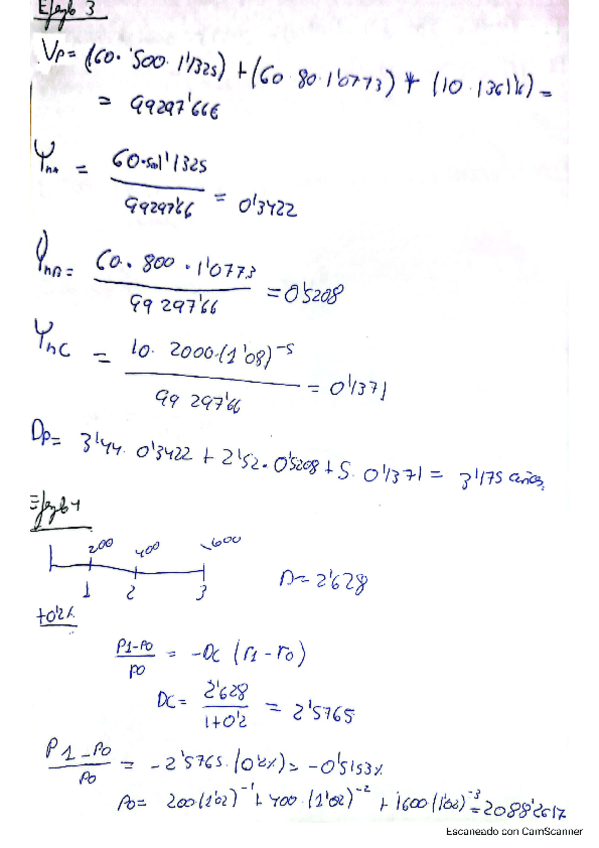 Ejeyb 3
Vp = (60 · 500 · 1'1325) + (60 · 80 · 1'0773) + (10 · 1361'16) =
= 99297'666
= 60·500·1'1325 / 99297'66 = 0'3422
= 60 · 800 · 1'0773 / 99 297'66 = 0'5208
= 10 · 2000·(1'08)^-5 / 99 297'66 = 0'1371
Dp = 3'44 · 0'3422 + 2'52 · 0'5208 + 5 · 0'1371 = 3'175 años.
200 400 1600
1 2 3
D = 2'628
+0'2%
P1-P0 / P0 = -DC (r1 - r0)
DC = 2'628 / 1+0'2 = 2'5765
P1-P0 / P0 = -2'5765 · (0'2%) = -0'5153%
P0 = 200(1'02)^-1 + 400 · (1'02)^-2 + 1600(1'02)^-3 = 2088'2617
Escaneado con CamScanner